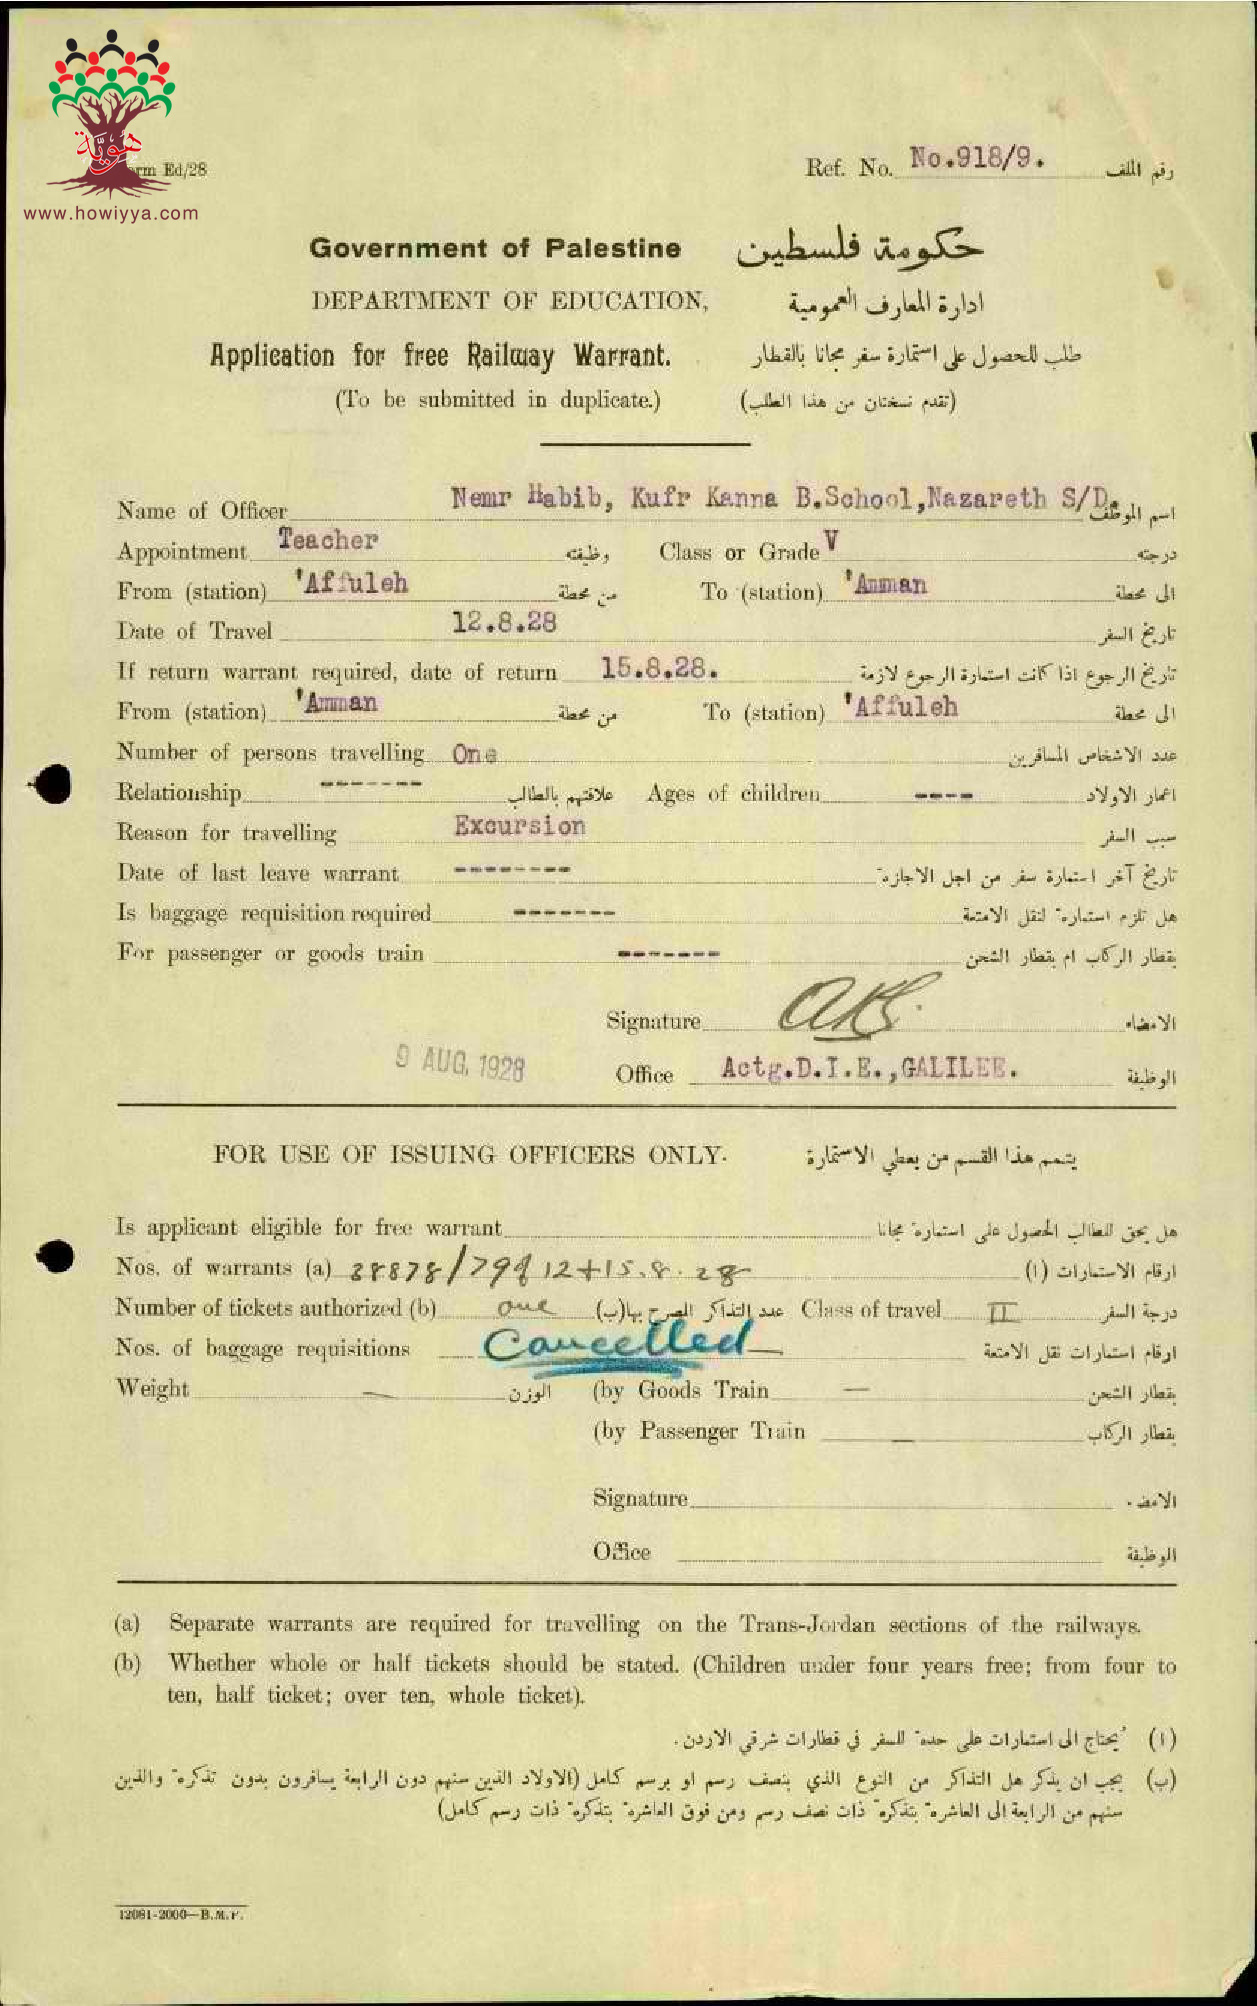 هوية
www.howiyya.com
rm Ed/28
Ref. No. No.918/9. رقم الملف
Government of Palestine حكومة فلسطين
DEPARTMENT OF EDUCATION, ادارة المعارف العمومية
Application for free Railway Warrant. طلب للحصول على استمارة سفر مجانا بالقطار
(To be submitted in duplicate.) (تقدم نسختان من هذا الطلب)
Name of Officer Nemr Habib, Kufr Kanna B.School,Nazareth S/D. اسم الموظف
Appointment Teacher وظيفته Class or Grade V درجته
From (station) 'Affuleh من محطة To (station) 'Amman الى محطة
Date of Travel 12.8.28 تاريخ السفر
If return warrant required, date of return 15.8.28. تاريخ الرجوع اذا كانت استمارة الرجوع لازمة
From (station) 'Amman من محطة To (station) 'Affuleh الى محطة
Number of persons travelling One عدد الاشخاص المسافرين
Relationship ------- علاقتهم بالطالب Ages of children ---- اعمار الاولاد
Reason for travelling Excursion سبب السفر
Date of last leave warrant -------- تاريخ آخر استمارة سفر من اجل الاجازة
Is baggage requisition required ------- هل تلزم استمارة لنقل الامتعة
For passenger or goods train ------- بقطار الركاب ام بقطار الشحن
Signature الامضاء
9 AUG. 1928
Office Actg.D.I.E.,GALILEE. الوظيفة
FOR USE OF ISSUING OFFICERS ONLY. يتمم هذا القسم من يعطي الاستمارة
Is applicant eligible for free warrant هل يحق للطالب الحصول على استمارة مجانا
Nos. of warrants (a) 38878/79 12+15.8.28 ارقام الاستمارات (ا)
Number of tickets authorized (b) one عدد التذاكر المصرح بها(ب) Class of travel II درجة السفر
Nos. of baggage requisitions Cancelled ارقام استمارات نقل الامتعة
Weight — الوزن (by Goods Train — بقطار الشحن
(by Passenger Train — بقطار الركاب
Signature الامضاء
Office الوظيفة
(a) Separate warrants are required for travelling on the Trans-Jordan sections of the railways.
(b) Whether whole or half tickets should be stated. (Children under four years free; from four to
ten, half ticket; over ten, whole ticket).
(ا) يحتاج الى استمارات على حدة للسفر في قطارات شرقي الاردن.
(ب) يجب ان يذكر هل التذاكر من النوع الذي بنصف رسم او برسم كامل (الاولاد الذين سنهم دون الرابعة يسافرون بدون تذكرة والذين
سنهم من الرابعة الى العاشرة بتذكرة ذات نصف رسم ومن فوق العاشرة بتذكرة ذات رسم كامل)
12081-2000—B.M.P.